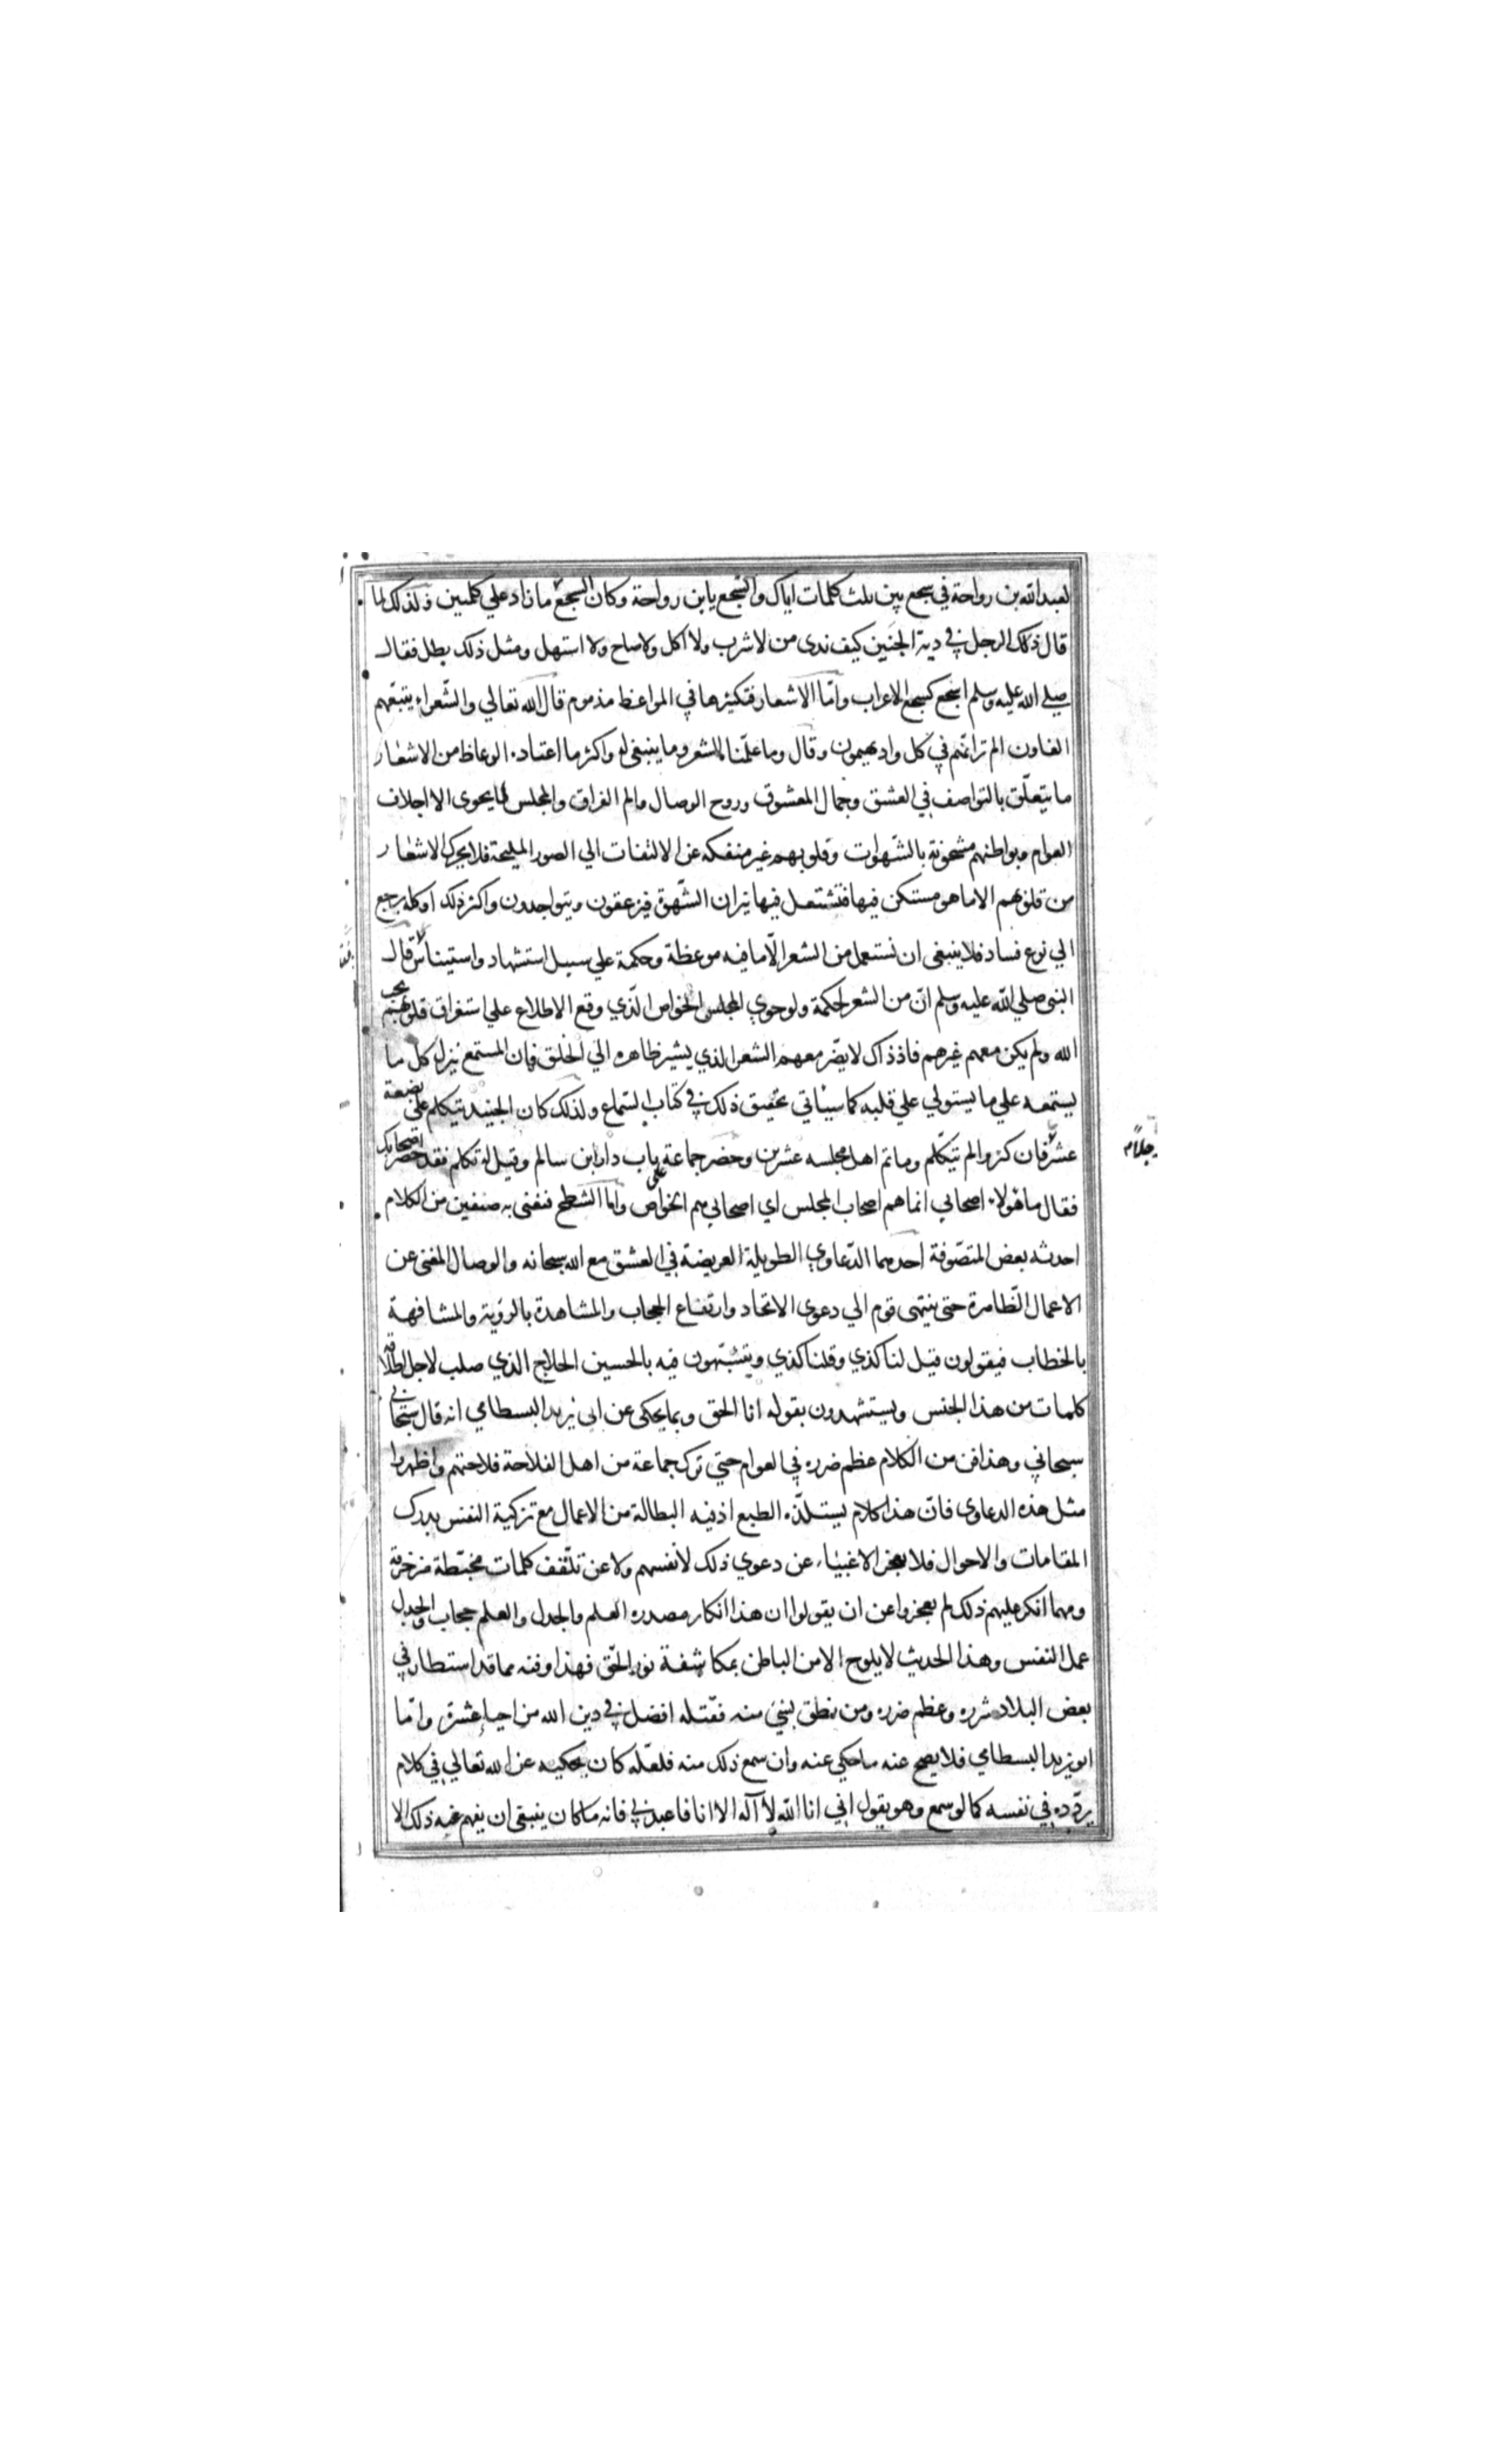 لعبد الله بن رواحة في سجع بين ثلث كلمات اياك والسجع يابن رواحة وكان السجع ما زاد علي كلمتين ولذلك لما
قال ذلك الرجل في دية الجنين كيف ندى من لا شرب ولا اكل ولا صاح ولا استهل ومثل ذلك بطل فقال
صلى الله عليه وسلم اسجع كسجع الاعراب واما الاشعار فتكثيرها في المواعظ مذموم قال الله تعالي والشعراء يتبعهم
الغاون الم تر انهم في كل واد يهيمون وقال وما علمناه الشعر وما ينبغي له واكثر ما اعتاده الوعاظ من الاشعار
ما يتعلق بالتواصف في العشق وجمال المعشوق وروح الوصال والم الفراق والمجلس لا يحوى الا اجلاف
العوام وبواطنهم مشحونة بالشهوات وقلوبهم غير منفكه عن الالتفات الي الصور المليحة فلا يحرك الاشعار
من قلوبهم الا ما هو مستكن فيها فتشتعل فيها نيران الشهوة فيزعقون ويتواجدون واكثر ذلك او كله يرجع
الي نوع فساد فلا ينبغى ان نستعمل من الشعر الا ما فيه موعظة وحكمة علي سبيل استشهاد واستيناس قال
النبى صلي الله عليه وسلم ان من الشعر لحكمة ولو حوى المجلس الخواص الذي وقع الاطلاع علي استغراق قلوبهم بحب
الله ولم يكن معهم غيرهم فاذ ذاك لا يضر معهم الشعر الذي يشير ظاهره الي الخلق فان المستمع ينزل كل ما
يستمعه علي ما يستولي علي قلبه كما سيأتي تحقيق ذلك في كتاب السماع ولذلك كان الجنيد يتكلم على بضعة
عشر فان كثروا لم يتكلم وما تم اهل مجلسه عشرين وحضر جماعة باب دار ابن سالم وقيل له تكلم فقد حضر اصحابك
رجلا م
فقال ما هولاء اصحابي انما هم اصحاب المجلس اي اصحابي هم الخواص واما الشطح فنعنى به صنفين من الكلام
احدثه بعض المتصوفة احدهما الدعاوي الطويلة العريضة في العشق مع الله سبحانه والوصال المغنى عن
الاعمال الظاهرة حتى ينتهى قوم الي دعوى الاتحاد وارتفاع الحجاب والمشاهدة بالروية والمشافهة
بالخطاب فيقولون قيل لنا كذي وقلنا كذي ويتشبهون فيه بالحسين الحلاج الذي صلب لاجل اطلاقه
كلمات من هذا الجنس ويستشهدون بقوله انا الحق وبما يحكى عن ابي يزيد البسطامي انه قال سبحاني
سبحاني وهذا فن من الكلام عظم ضرره في العوام حتي ترك جماعة من اهل الفلاحة فلاحتهم واظهروا
مثل هذه الدعاوى فان هذا كلام يستلذه الطبع اذ فيه البطالة من الاعمال مع تزكية النفس بدرك
المقامات والاحوال فلا يعجز الاغبياء عن دعوي ذلك لانفسهم ولا عن تلقف كلمات مخبطة مزخرفة
ومهما انكر عليهم ذلك لم يعجزوا عن ان يقولوا ان هذا انكار مصدره العلم والجدل والعلم حجاب والجدل
عمل النفس وهذا الحديث لا يلوح الا من الباطن بمكاشفة نور الحق فهذا وفنه مما قد استطار في
بعض البلاد شرره وعظم ضرره ومن نطق بشئ منه فقتله افضل في دين الله من احياء عشرة واما
ابو يزيد البسطامي فلا يصح عنه ما حكي عنه وان سمع ذلك منه فلعله كان يحكيه عن الله تعالي في كلام
يردده في نفسه كما لو سمع وهو يقول اني انا الله لا اله الا انا فاعبدني فانه ما كان ينبغى ان يفهم عنه ذلك الا